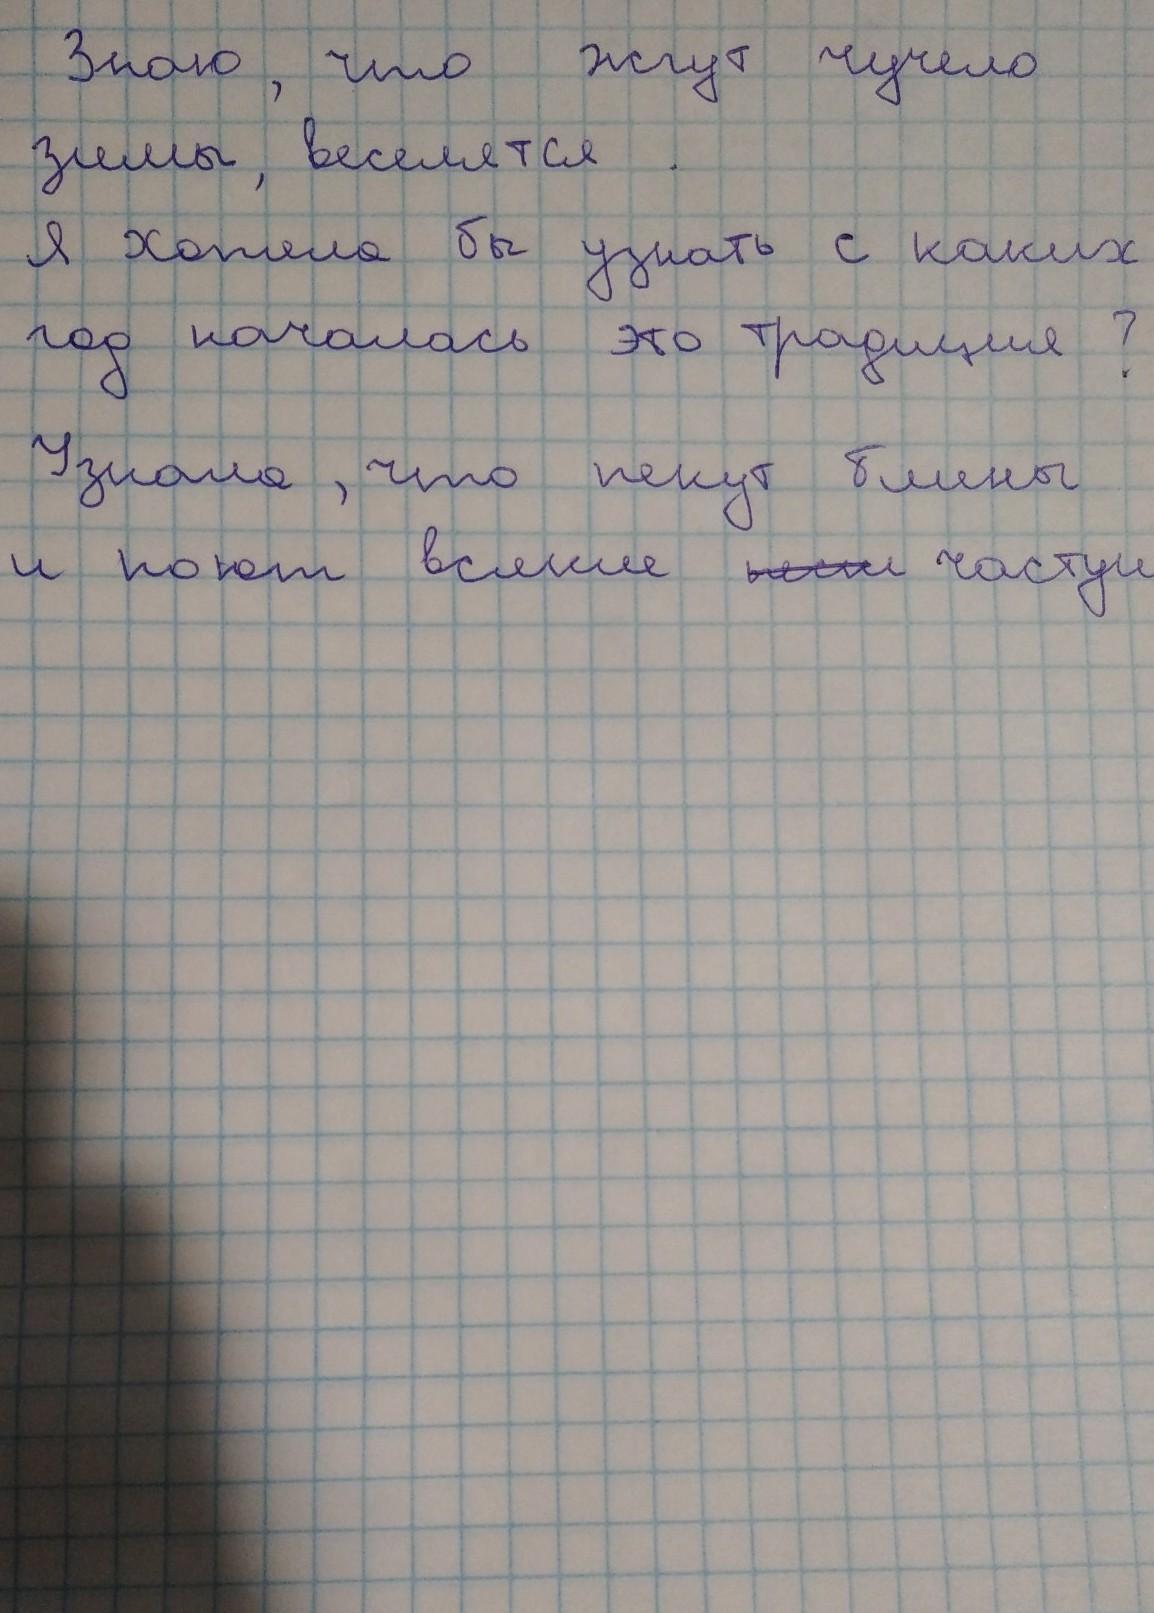 Знаю, что жгут чучело
зимы, веселятся.
Я хотела бы узнать с каких
год началась это традиция?
Узнала, что пекут блины
и поют всякие частуш